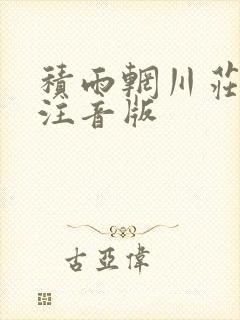 積雨輞川莊
注音版
古亞偉